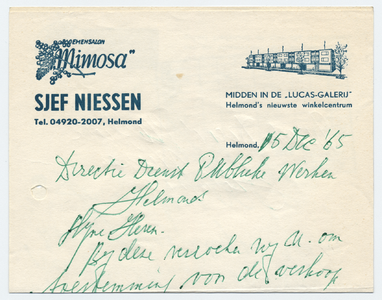 BLOEMENSALON
„Mimosa"
SJEF NIESSEN
Tel. 04920-2007, Helmond
MIDDEN IN DE „LUCAS-GALERIJ"
Helmond's nieuwste winkelcentrum
Helmond, 15 Dec '65
Directie Dienst Publieke Werken
Helmond
Mijne Heren.
Bij deze verzoeken wij U. om
toestemming voor de verkoop